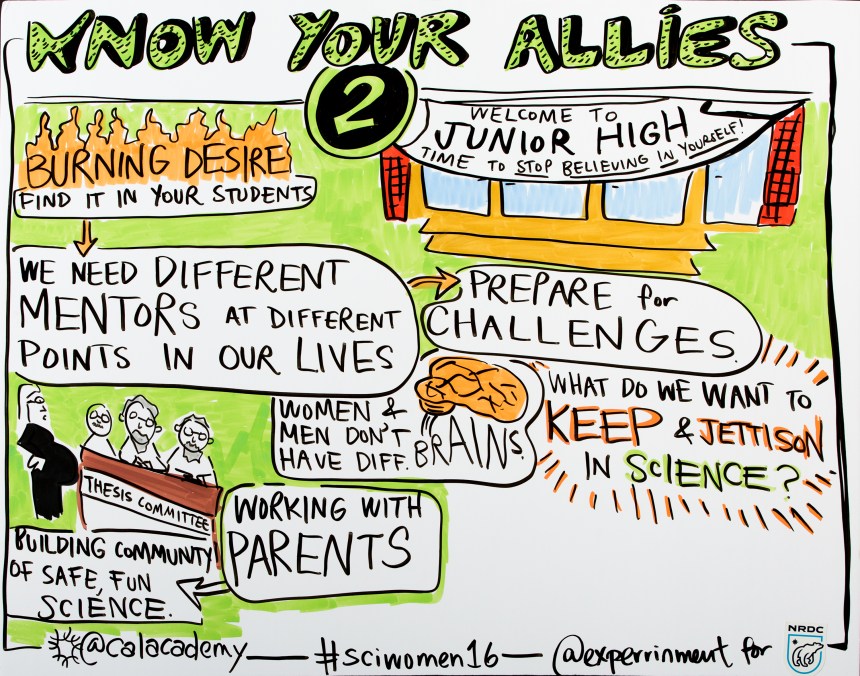 KNOW YOUR ALLIES
2
BURNING DESIRE
FIND IT IN YOUR STUDENTS
WELCOME TO
JUNIOR HIGH
TIME TO STOP BELIEVING IN YOURSELF!
WE NEED DIFFERENT
MENTORS AT DIFFERENT
POINTS IN OUR LIVES
PREPARE for
CHALLENGES.
WOMEN &
MEN DON'T
HAVE DIFF. BRAINS.
WHAT DO WE WANT TO
KEEP & JETTISON
IN SCIENCE?
THESIS COMMITTEE
WORKING WITH
PARENTS
BUILDING COMMUNITY
OF SAFE, FUN
SCIENCE.
@calacademy — #sciwomen16 — @experrinment for
NRDC